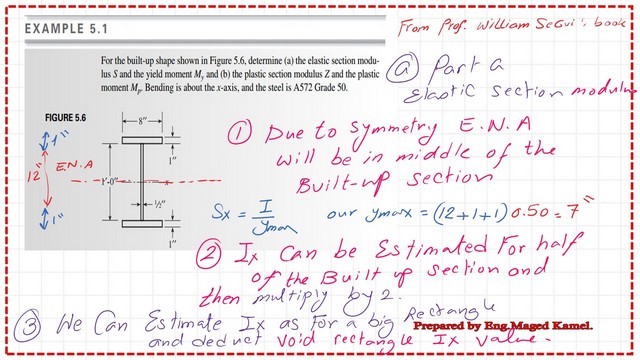 EXAMPLE 5.1
From Prof. William SeGui's book
For the built-up shape shown in Figure 5.6, determine (a) the elastic section modu-
lus S and the yield moment My and (b) the plastic section modulus Z and the plastic
moment Mp. Bending is about the x-axis, and the steel is A572 Grade 50.
ⓐ Part a
Elastic section modulus
FIGURE 5.6
8"
1"
1"
12"
E.N.A
1'-0"
x
½"
1"
1"
① Due to symmetry E.N.A
will be in middle of the
Built-up section
Sx = I / ymax
our ymax = (12+1+1) 0.50 = 7"
② Ix Can be Estimated For half
of the Built up section and
then multiply by 2.
③ We Can Estimate Ix as for a big Rectangle
and deduct void rectangle Ix value.
Prepared by Eng.Maged Kamel.